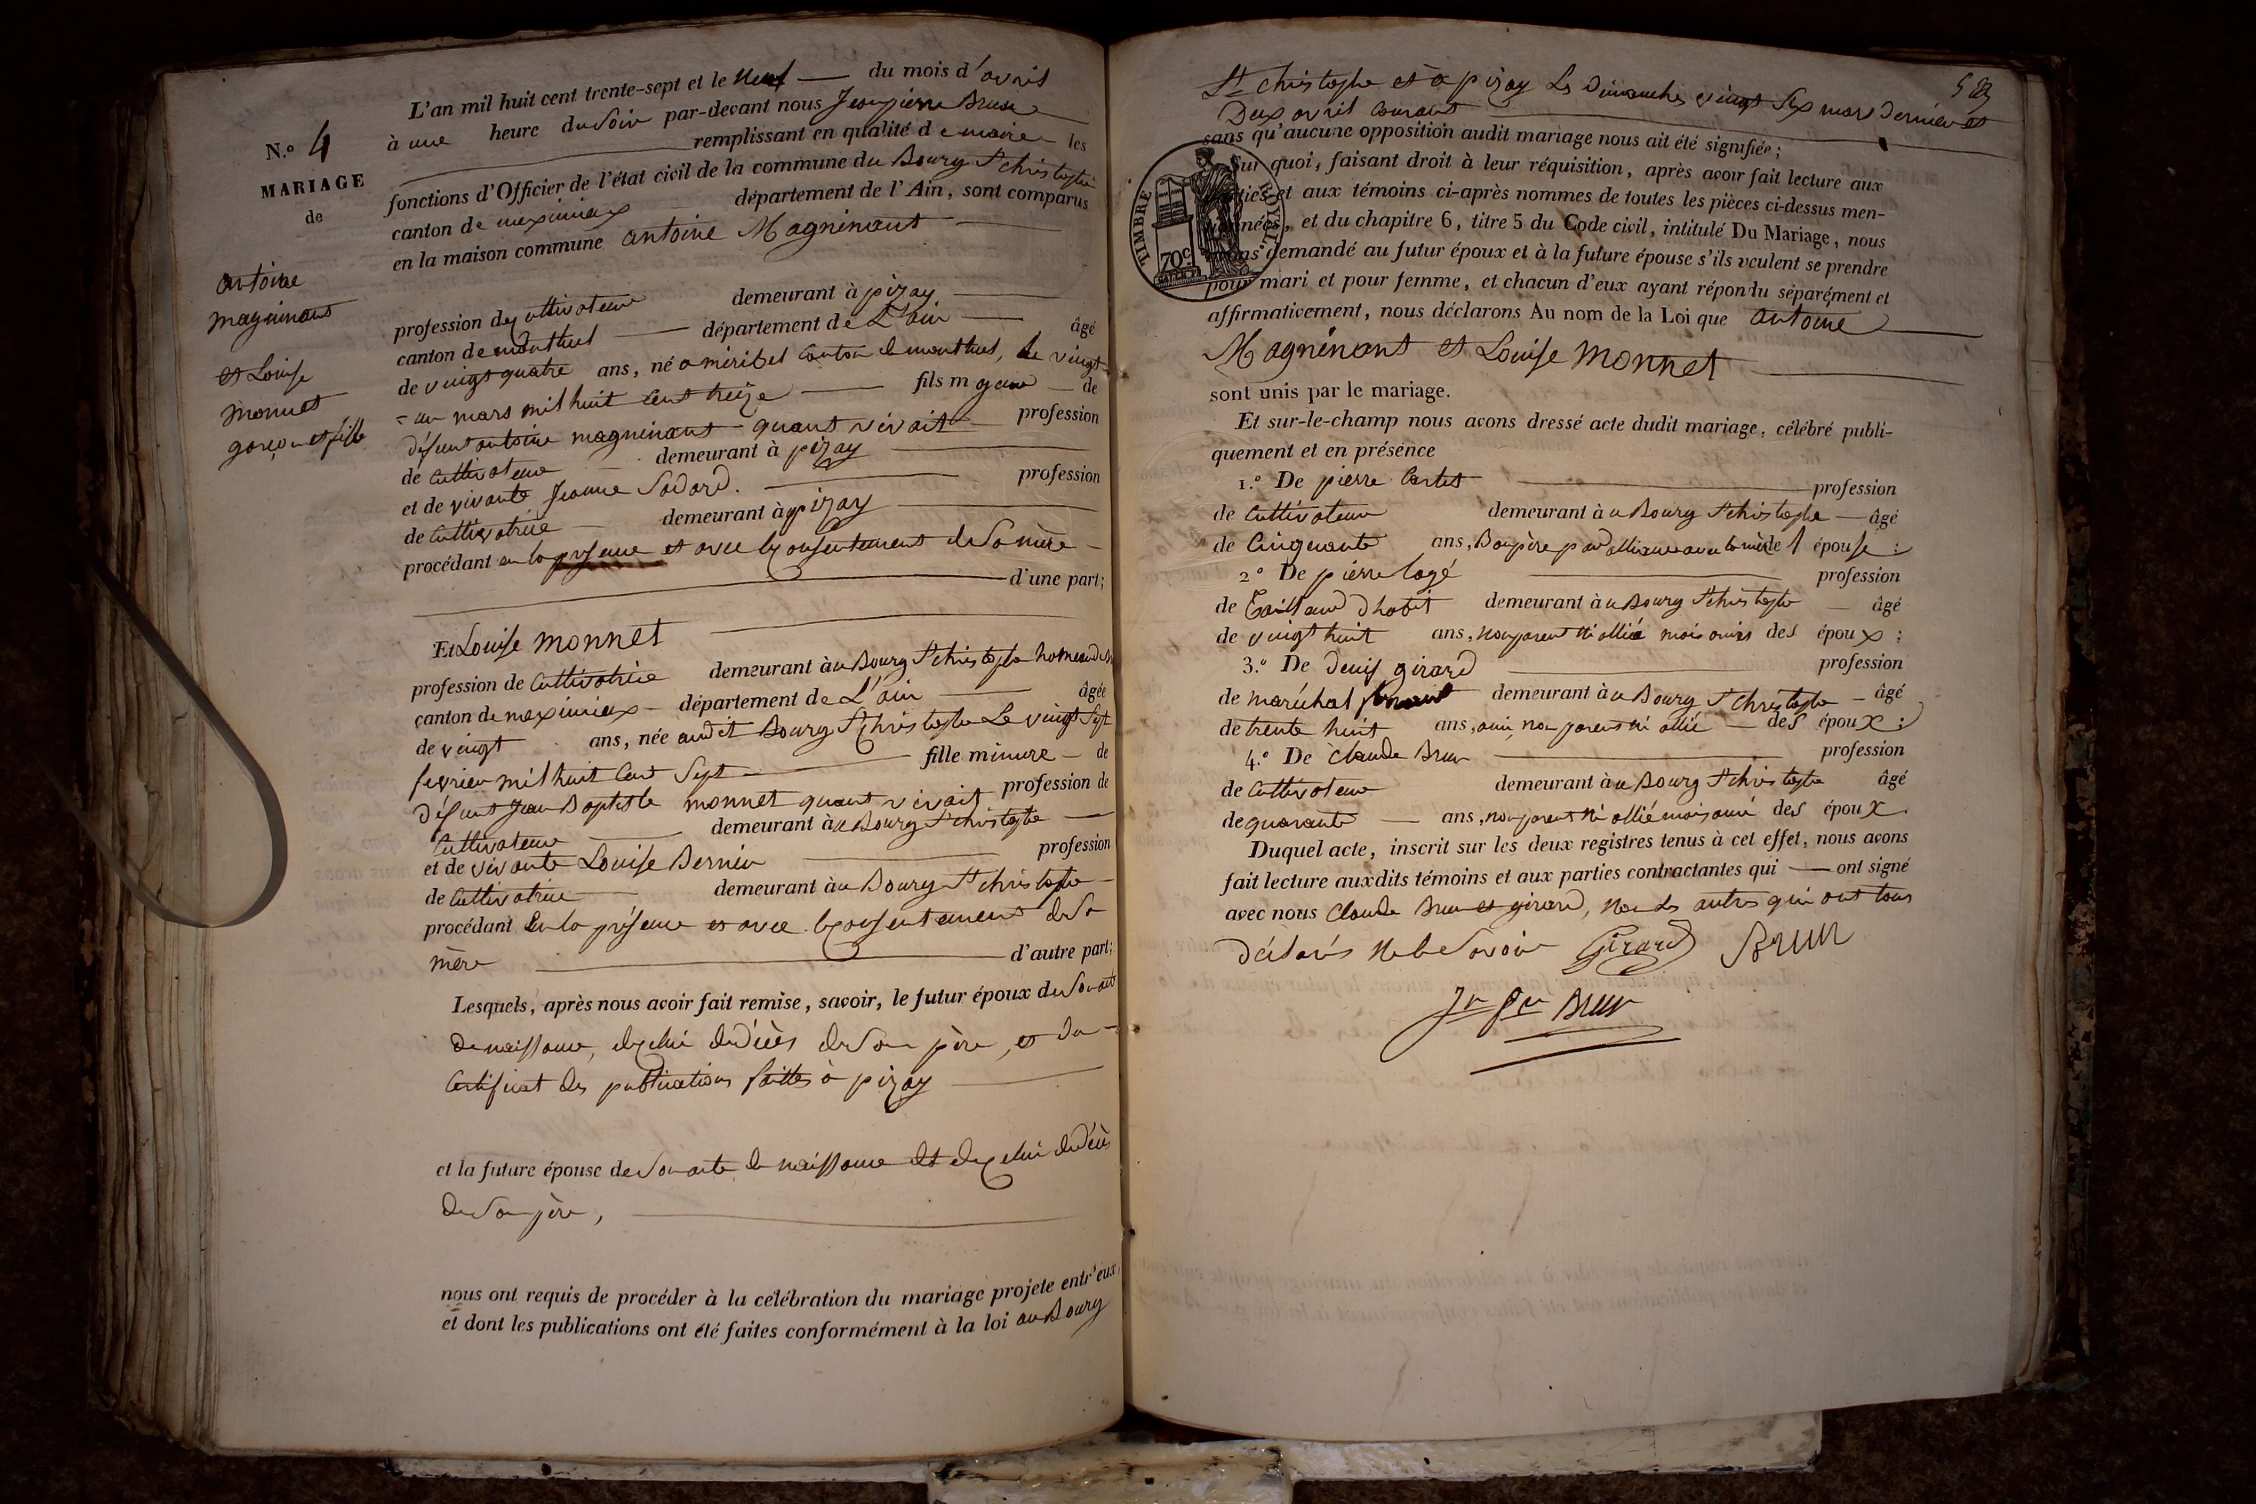 N.o 4
MARIAGE
de
antoine
magninant
et Louise
monnet
garçon et fille
L'an mil huit cent trente-sept et le neuf — du mois d'avril
à une heure du Soir par-devant nous Jean pierre Brun
remplissant en qualité de maire les
fonctions d'Officier de l'état civil de la commune du Bourg St christophe
canton de meximieux département de l'Ain, sont comparus
en la maison commune antoine Magninant
profession de cultivateur demeurant à pizay
canton de montluel département de L'ain âgé
de vingt quatre ans, né a miribel canton de montluel, le vingt
= un mars mil huit cent treize fils majeur de
défunt antoine magninant quant vivait profession
de Cultivateur demeurant à pizay
et de vivante Jeanne Sadard. profession
de Cultivatrice demeurant à pizay
procédant en la présence et avec le consentement de Sa mère
d'une part;
Et Louise monnet
profession de Cultivatrice demeurant à u Bourg St christophe
canton de meximieux département de L'ain âgée
de vingt ans, née audit Bourg St christophe Le vingt Sept
fevrier mil huit Cent Sept fille mineure de
défunt Jean Baptiste monnet quant vivait profession de
Cultivateur demeurant à u Bourg St christophe
et de vivante Louise Bernin profession
de Cultivatrice demeurant à u Bourg St christophe
procédant En la présence et avec le consentement de Sa
mère d'autre part;
Lesquels, après nous avoir fait remise, savoir, le futur époux de Son acte
de naissance, de celui du décès de Son père, et du
Certificat des publications faites à pizay
et la future épouse de Son acte de naissance et de celui du décès
de Son père,
nous ont requis de procéder à la célébration du mariage projeté entr'eux,
et dont les publications ont été faites conformément à la loi au Bourg
St christophe et à pizay Les Dimanches vingt Six mars dernier et
Deux avril Courant
sans qu'aucune opposition audit mariage nous ait été signifiée;
Sur quoi, faisant droit à leur réquisition, après avoir fait lecture aux
parties et aux témoins ci-après nommés de toutes les pièces ci-dessus men-
tionnées, et du chapitre 6, titre 5 du Code civil, intitulé Du Mariage, nous
avons demandé au futur époux et à la future épouse s'ils veulent se prendre
pour mari et pour femme, et chacun d'eux ayant répondu séparément et
affirmativement, nous déclarons Au nom de la Loi que antoine
Magninant et Louise Monnet
sont unis par le mariage.
TIMBRE ROYAL.
70c
Et sur-le-champ nous avons dressé acte dudit mariage, célébré publi-
quement et en présence
1.o De pierre profession
de Cultivateur demeurant à u Bourg St christophe âgé
de Cinquante ans, Beaupère par alliance avec la mère de l'épouse;
2o De pierre Logé profession
de Tailleur d'habit demeurant à u Bourg St christophe âgé
de vingt huit ans, non parent ni allié mais amis des époux;
3.o De denis girard profession
de maréchal ferrant demeurant à u Bourg St christophe âgé
de trente huit ans, ami, non parent ni allié des époux;
4.o De Claude Brun profession
de Cultivateur demeurant à u Bourg St christophe âgé
de quarante ans, non parent ni allié mais ami des époux.
Duquel acte, inscrit sur les deux registres tenus à cet effet, nous avons
fait lecture auxdits témoins et aux parties contractantes qui — ont signé
avec nous Claude Brun et girard, non les autres qui ont tous
déclarés Ne le Savoir Girard Brun
Jn Pre Brun